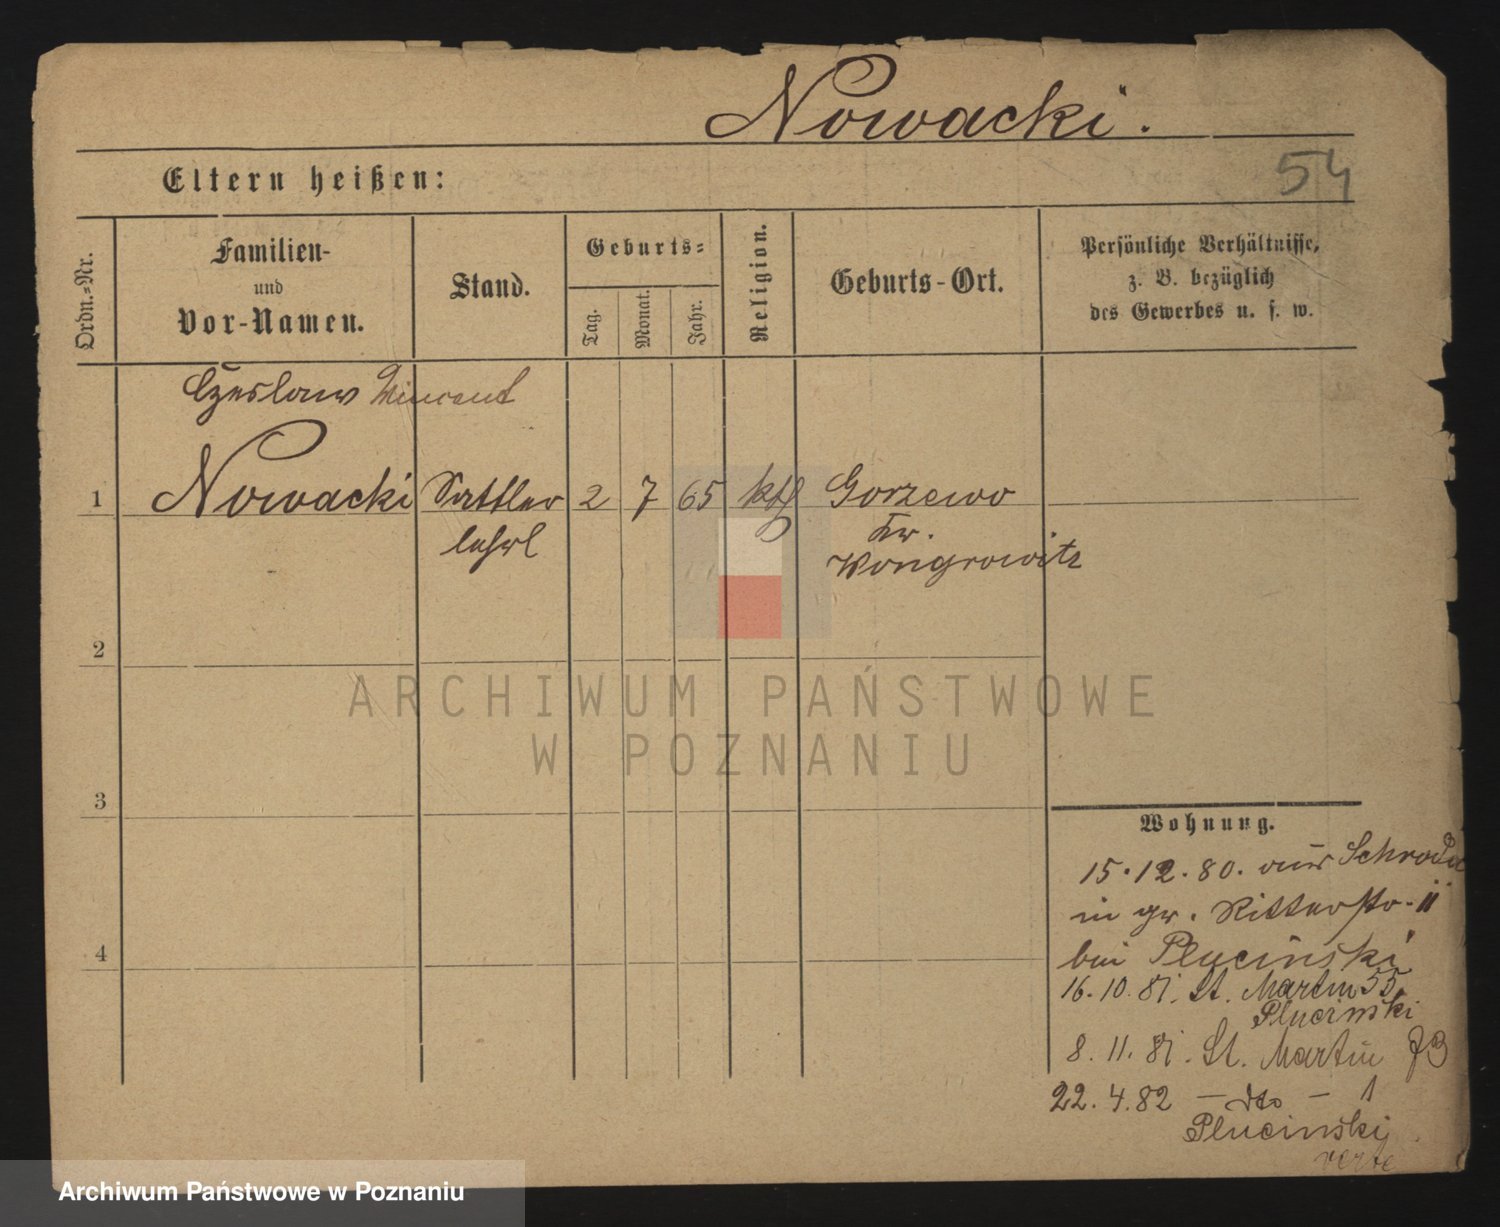 Nowacki.
54
Eltern heißen:
Ordn.-Nr.
Familien-
und
Vor-Namen.
Stand.
Geburts-
Tag.
Monat.
Jahr.
Religion.
Geburts-Ort.
Persönliche Verhältnisse,
z. B. bezüglich
des Gewerbes u. s. w.
Czeslaus Vincent
1 Nowacki Sattler 2 7 65 kth Gorzewo
lehrl Kr.
Wongrowitz
2
ARCHIWUM PAŃSTWOWE
W POZNANIU
3
Wohnung.
15.12.80. aus Schroda
in gr. Ritterstr. 11
bei Plucinski
16.10.81. St. Martin 55
Plucinski
4
8.11.81. St. Martin 73
22.4.82 - dto - 1
Plucinski
verte
Archiwum Państwowe w Poznaniu